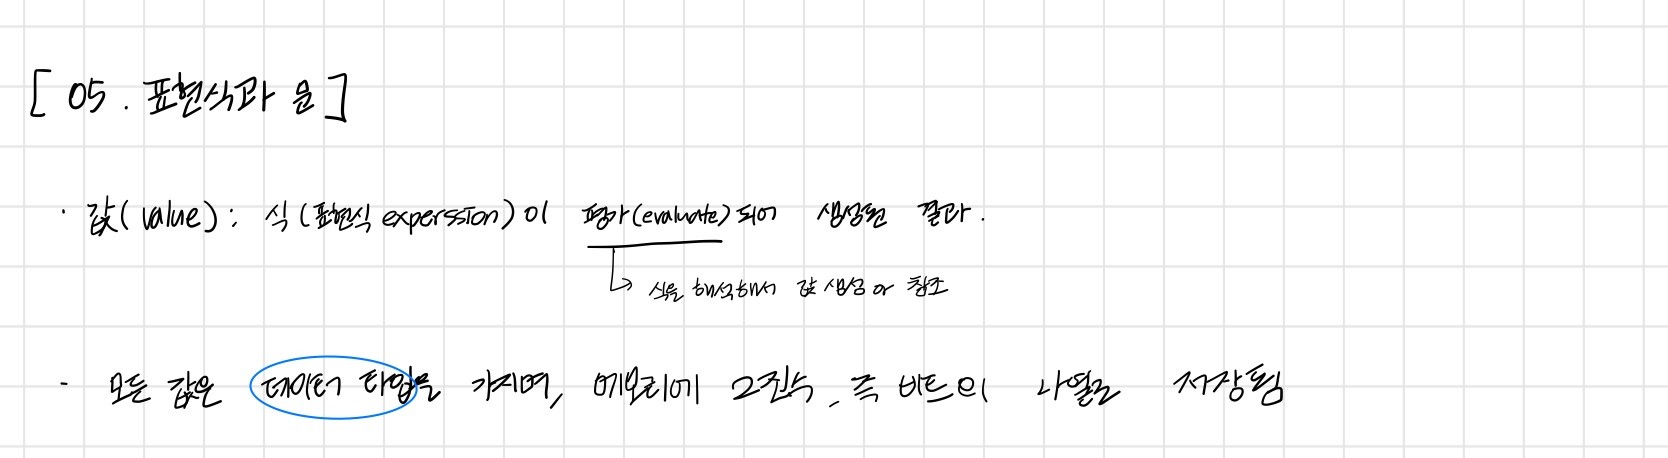 [ 05. 표현식과 문 ]
· 값(value): 식(표현식 experssion)이 평가(evaluate)되어 생성된 결과.
식을 해석해서 값 생성 or 참조
- 모든 값은 데이터 타입을 가지며, 메모리에 2진수, 즉 비트의 나열로 저장됨